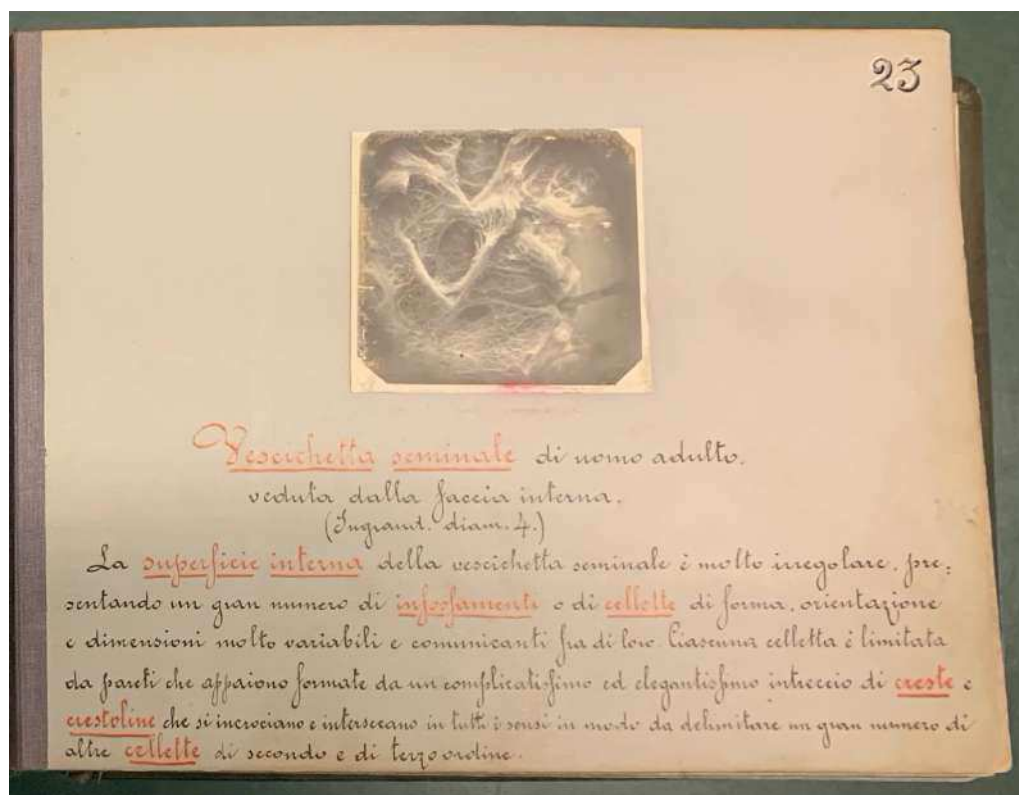 23
Vescichetta seminale di uomo adulto.
veduta dalla faccia interna.
(Ingrand. diam. 4.)
La superficie interna della vescichetta seminale è molto irregolare, pre:
sentando un gran numero di infossamenti o di cellette di forma, orientazione
e dimensioni molto variabili e comunicanti fra di loro. Ciascuna celletta è limitata
da pareti che appaiono formate da un complicatissimo ed elegantissimo intreccio di creste e
crestoline che si incrociano e intersecano in tutti i sensi in modo da delimitare un gran numero di
altre cellette di secondo e di terzo ordine.